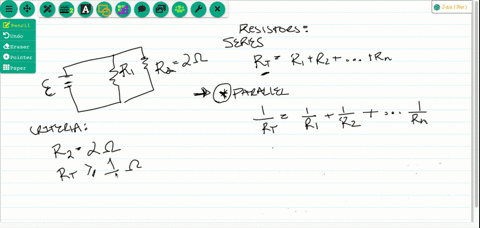 Pencil
Undo
Eraser
Pointer
Paper
RESISTORS:
SERIES
R_T = R_1 + R_2 + ... + R_n
→ * PARALLEL
1/R_T = 1/R_1 + 1/R_2 + ... 1/R_n
ε
R_1
R_2 = 2Ω
CRITERIA:
R_2 = 2Ω
R_T ≥ 1/ Ω